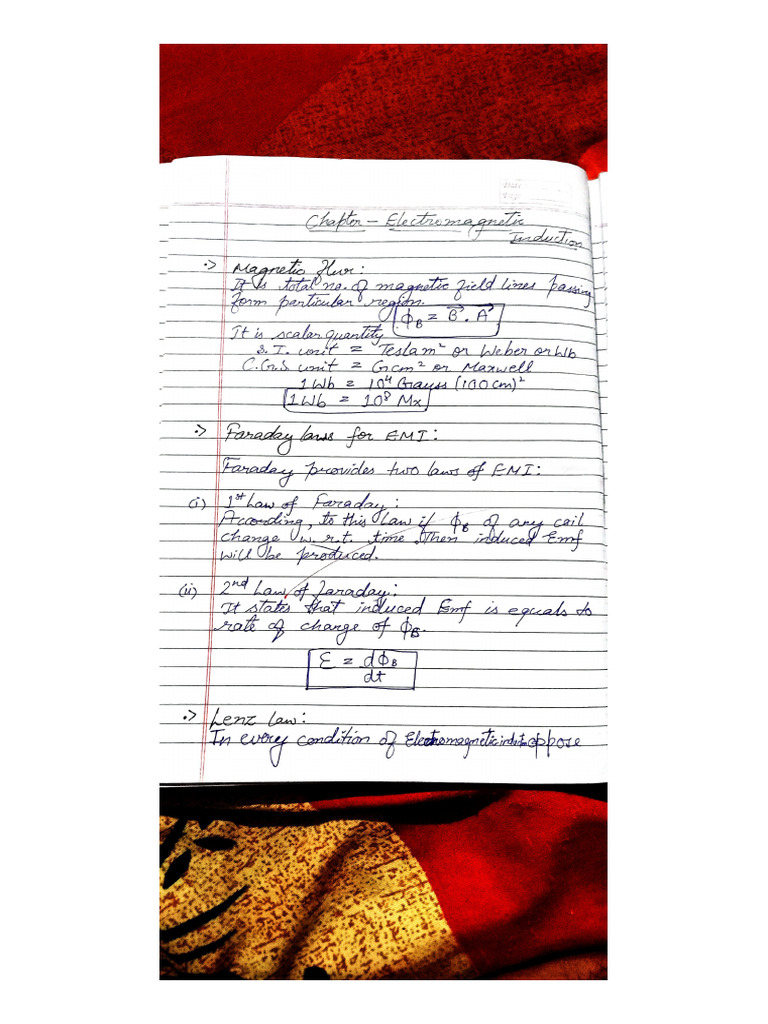 Chapter – Electromagnetic
Induction
:> Magnetic Flux:
It is total no. of magnetic field lines passing
form particular region.
ϕB = B⃗ . A⃗
It is scalar quantity
S.I. unit = Teslam² or Weber or Wb
C.G.S unit = Gcm² or Maxwell
1 Wb = 10⁴ Grayss (100 cm)²
1 Wb = 10⁸ Mx
:> Faraday laws for EMI:
Faraday provides two laws of EMI:
(i) 1st Law of Faraday:
According, to this Law if ϕB of any cail
change w.r.t. time. Then induced Emf
will be produced.
(ii) 2nd Law of Faraday:
It states that induced Emf is equals to
rate of change of ϕB.
ε = dϕB
dt
:> Lenz Law:
In every condition of Electromagnetic oppose